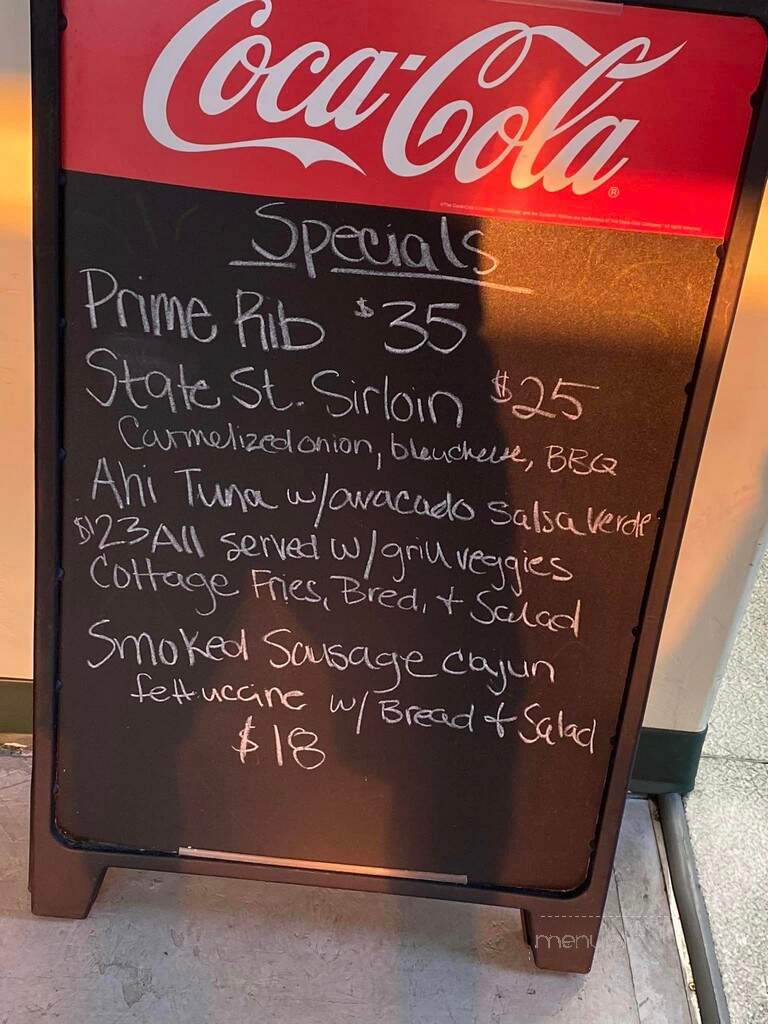 Coca-Cola
Specials
Prime Rib $35
State St. Sirloin $25
Carmelized onion, bleucheese, BBQ
Ahi Tuna w/avacado Salsa Verde
$23 All served w/grill veggies
Cottage Fries, Bred, + Salad
Smoked Sausage cajun
fettuccine w/ Bread + Salad
$18
menu